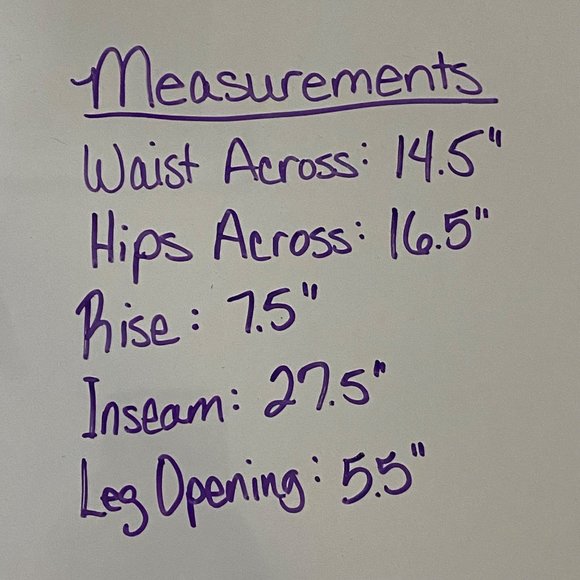 Measurements
Waist Across: 14.5"
Hips Across: 16.5"
Rise: 7.5"
Inseam: 27.5"
Leg Opening: 5.5"